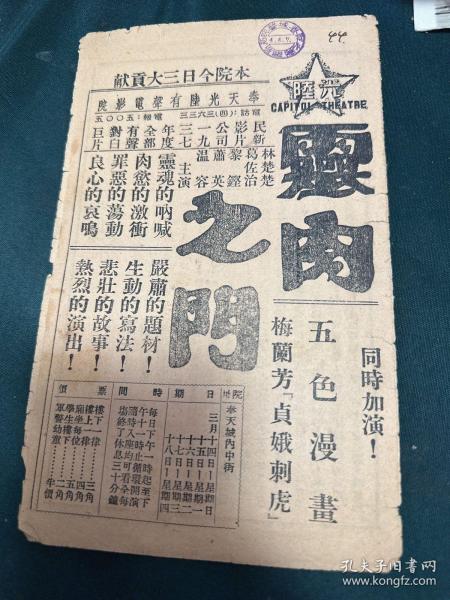 44
光陸
CAPITOL THEATRE
本院今日三大貢献
奉天光陸有聲電影院
電話：(四)三六三三
電報：五〇〇五
靈肉
之門
民新影片公司一九三七年度全部有聲對白巨片
林楚楚
葛佐治
黎鏗
蕭英
溫容
主演
靈魂的吶喊
肉慾的激衝
罪惡的蕩動
良心的哀鳴
嚴肅的題材！
生動的寫法！
悲壯的故事！
熱烈的演出！
同時加演！
五色漫畫
梅蘭芳『貞娥刺虎』
院址
奉天城內中街
日期
三月十四日星期日
十五日星期一
十六日星期二
十七日星期三
十八日星期四
時間
每日下午一時起至下
午十一時止循環開演
隨時入座均可看全每
場終了休息三十分鐘
票價
樓下一律 三角
樓上一律 四角
廂坐每位 五角
學生樓下 二角
軍警幼童 半價
孔夫子旧书网
www.kongfz.com